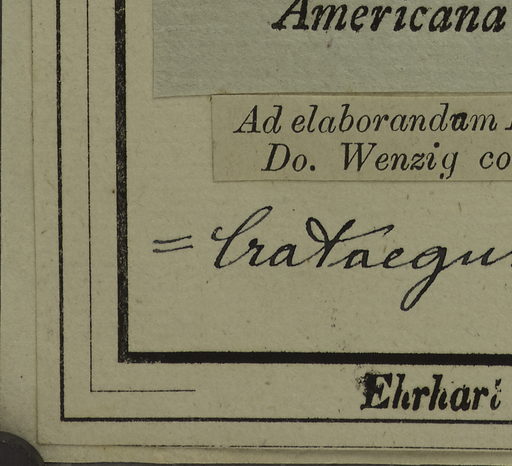 Americana
Ad elaborandum
Do. Wenzig co
= Crataegu
Ehrhart